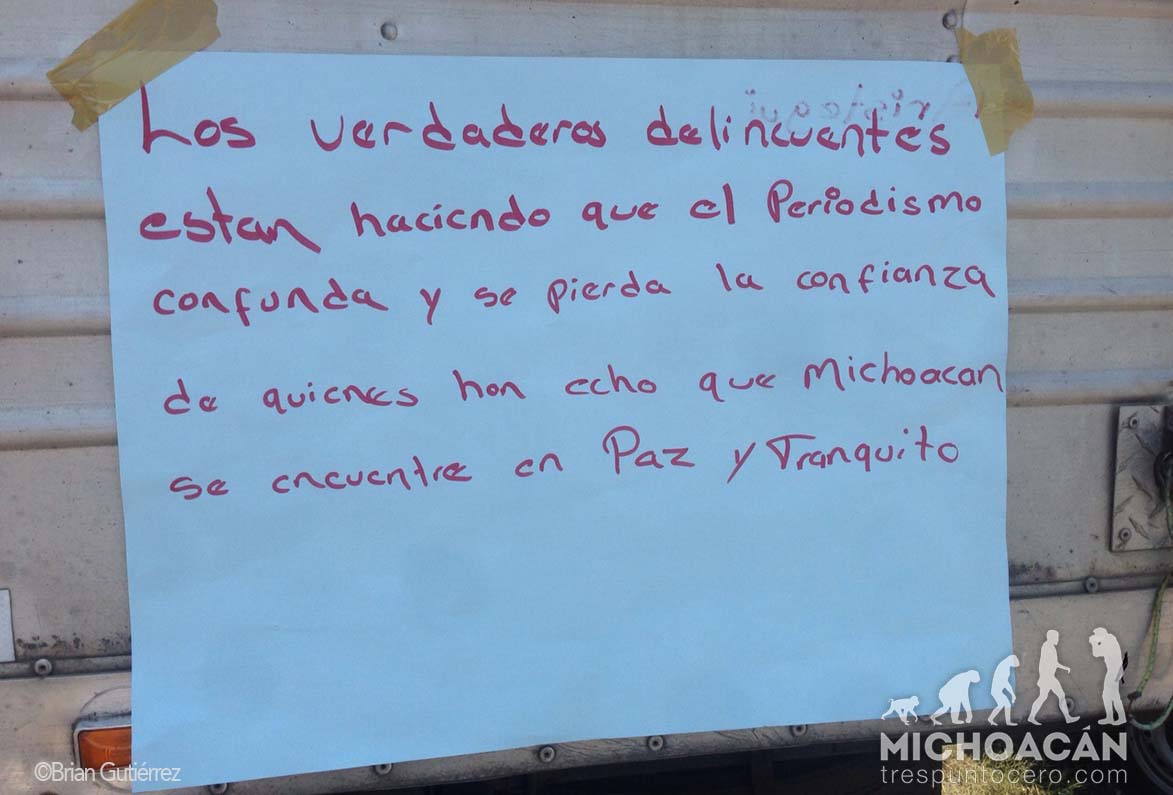 Los verdaderos delincuentes
estan haciendo que el Periodismo
confunda y se pierda la confianza
de quienes han echo que Michoacan
se encuentre en Paz y Tranquito
©Brian Gutiérrez
MICHOACÁN
trespuntocero.com